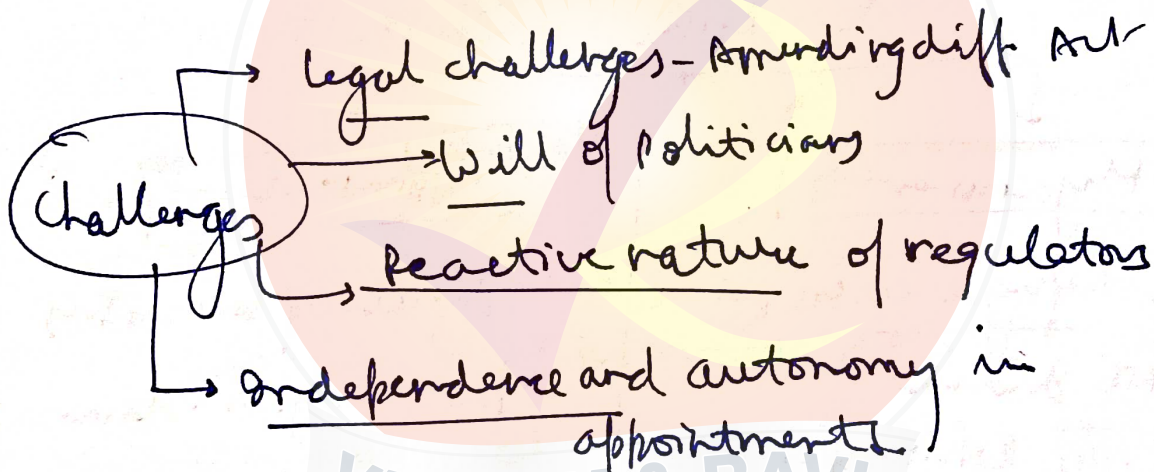 Legal challenges - Amending diff Act
Will of Politicians
Challenges
Reactive nature of regulators
Independence and autonomy in
appointments